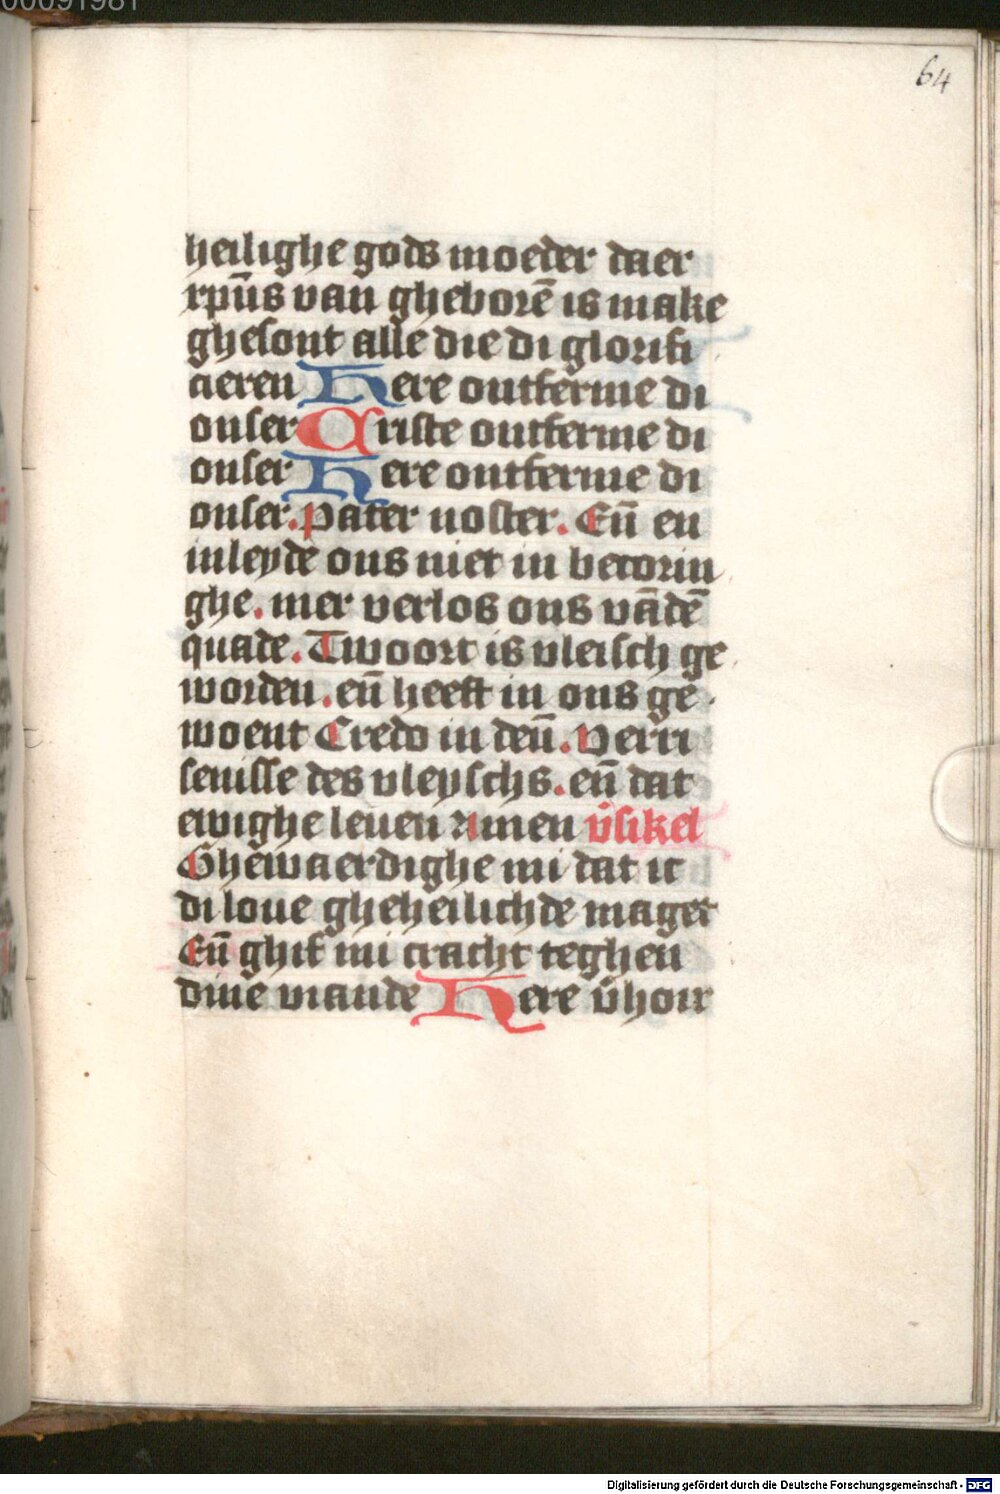 00091981
64
heilighe gods moeder daer
xpūs van gheborē is make
ghesont alle die di glorifi
cieren Here ontferme di
onser Criste ontferme di
onser Here ontferme di
onser. Pater noster. Eñ en
inleyde ons niet in becorin
ghe. mer verlos ons vādē
quade. Twoort is vleisch ge
worden. eñ heeft in ons ge
woent Credo in deū. Verri
senisse des vleyschs. eñ dat
ewighe leuen Amen v̄sikel
Ghewaerdighe mi dat ic
di loue gheheilichde maget
Eñ ghif mi cracht teghen
dine viande Here v̄hoir
Digitalisierung gefördert durch die Deutsche Forschungsgemeinschaft - DFG